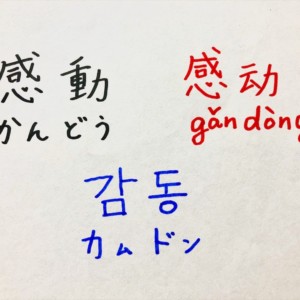 感動
かんどう
感动
gǎndòng
감동
カムドン